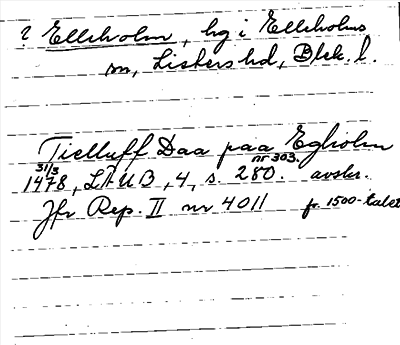 ? Elleholm, hg i Elleholms
sn, Listers hd, Blek. l.
Tielluff Daa paa Egholm
31/3 nr 303.
1478, LÄUB, 4, s. 280. avskr.
Jfr Rep. II nr 4011 fr. 1500-talet